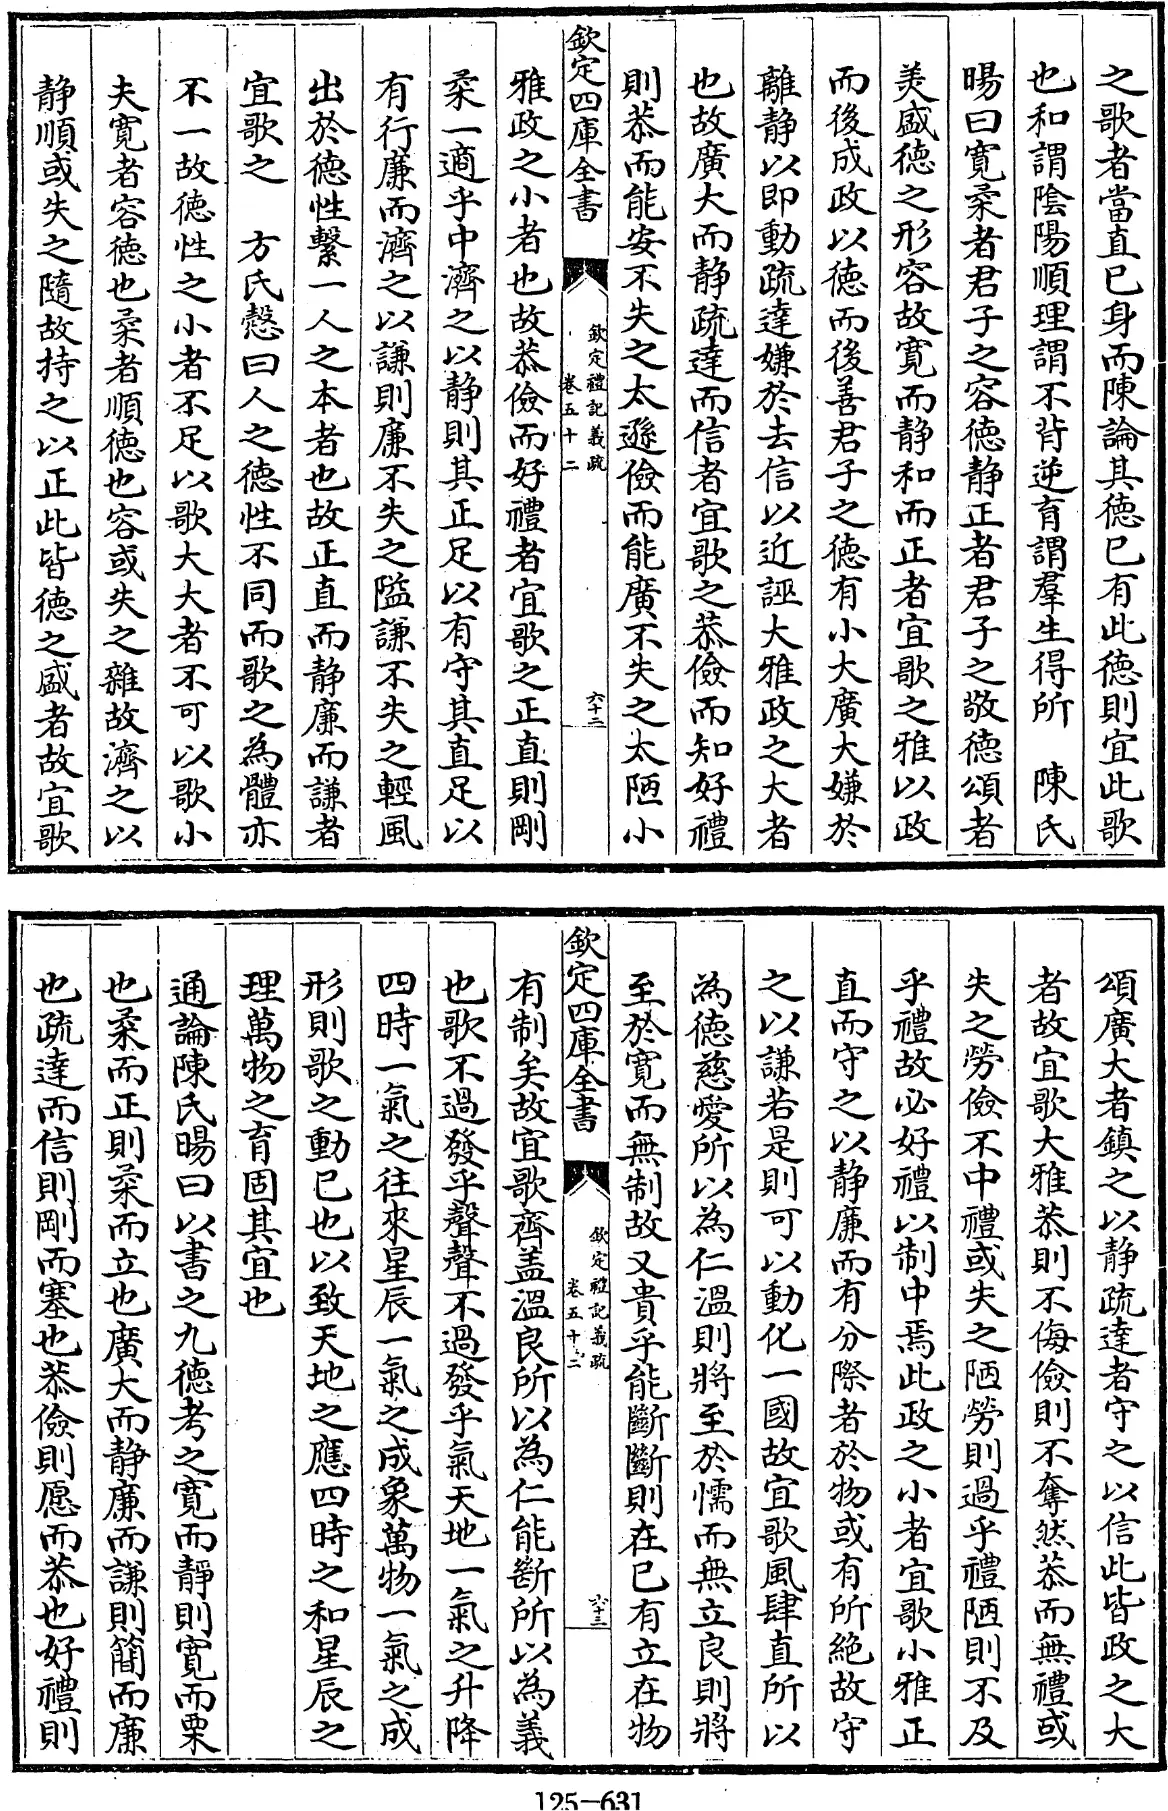 之歌者當直已身而陳論其徳已有此徳則宜此歌
也和謂陰陽順理謂不背逆育謂羣生得所　陳氏
暘曰寛柔者君子之容徳静正者君子之敬徳頌者
美盛徳之形容故寛而静和而正者宜歌之雅以政
而後成政以徳而後善君子之徳有小大廣大嫌於
離静以即動疏達嫌於去信以近誣大雅政之大者
也故廣大而静疏達而信者宜歌之恭儉而知好禮
則恭而能安不失之太遜儉而能廣不失之太陋小
欽定四庫全書
欽定禮記義疏
卷五十二
六十二
雅政之小者也故恭儉而好禮者宜歌之正直則剛
柔一適乎中濟之以静則其正足以有守其直足以
有行廉而濟之以謙則廉不失之隘謙不失之輕風
出於徳性繫一人之本者也故正直而静廉而謙者
宜歌之　方氏慤曰人之徳性不同而歌之為體亦
不一故徳性之小者不足以歌大大者不可以歌小
夫寛者容徳也柔者順徳也容或失之雜故濟之以
静順或失之隨故持之以正此皆徳之盛者故宜歌
頌廣大者鎮之以静疏達者守之以信此皆政之大
者故宜歌大雅恭則不侮儉則不奪然恭而無禮或
失之勞儉不中禮或失之陋勞則過乎禮陋則不及
乎禮故必好禮以制中焉此政之小者宜歌小雅正
直而守之以静廉而有分際者於物或有所絶故守
之以謙若是則可以動化一國故宜歌風肆直所以
為徳慈愛所以為仁溫則將至於懦而無立良則將
至於寛而無制故又貴乎能斷斷則在已有立在物
欽定四庫全書
欽定禮記義疏
卷五十二
六十三
有制矣故宜歌齊盖溫良所以為仁能斷所以為義
也歌不過發乎聲聲不過發乎氣天地一氣之升降
四時一氣之往來星辰一氣之成象萬物一氣之成
形則歌之動已也以致天地之應四時之和星辰之
理萬物之育固其宜也
通論陳氏暘曰以書之九徳考之寛而靜則寛而栗
也柔而正則柔而立也廣大而静廉而謙則簡而廉
也疏達而信則剛而塞也恭儉則愿而恭也好禮則
125-631